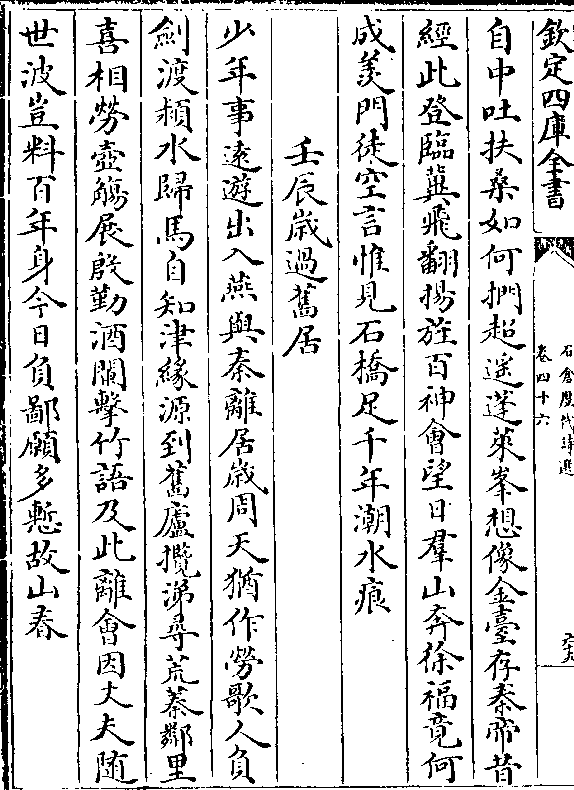 欽定四庫全書
石倉歷代詩選
卷四十六
自中吐扶桑如何捫超遥蓬萊峯想像金臺存秦帝昔
經此登臨冀飛翻揚旌百神會望日羣山奔徐福竟何
成羨門徒空言惟見石橋足千年潮水痕
壬辰歲過舊居
少年事遠遊出入燕與秦離居歲周天猶作勞歌人負
劍渡潁水歸馬自知津緣源到舊廬攬涕尋荒蓁鄰里
喜相勞壺觴展殷勤酒闌擊竹語及此離會因丈夫随
世波豈料百年身今日負鄙願多慙故山春